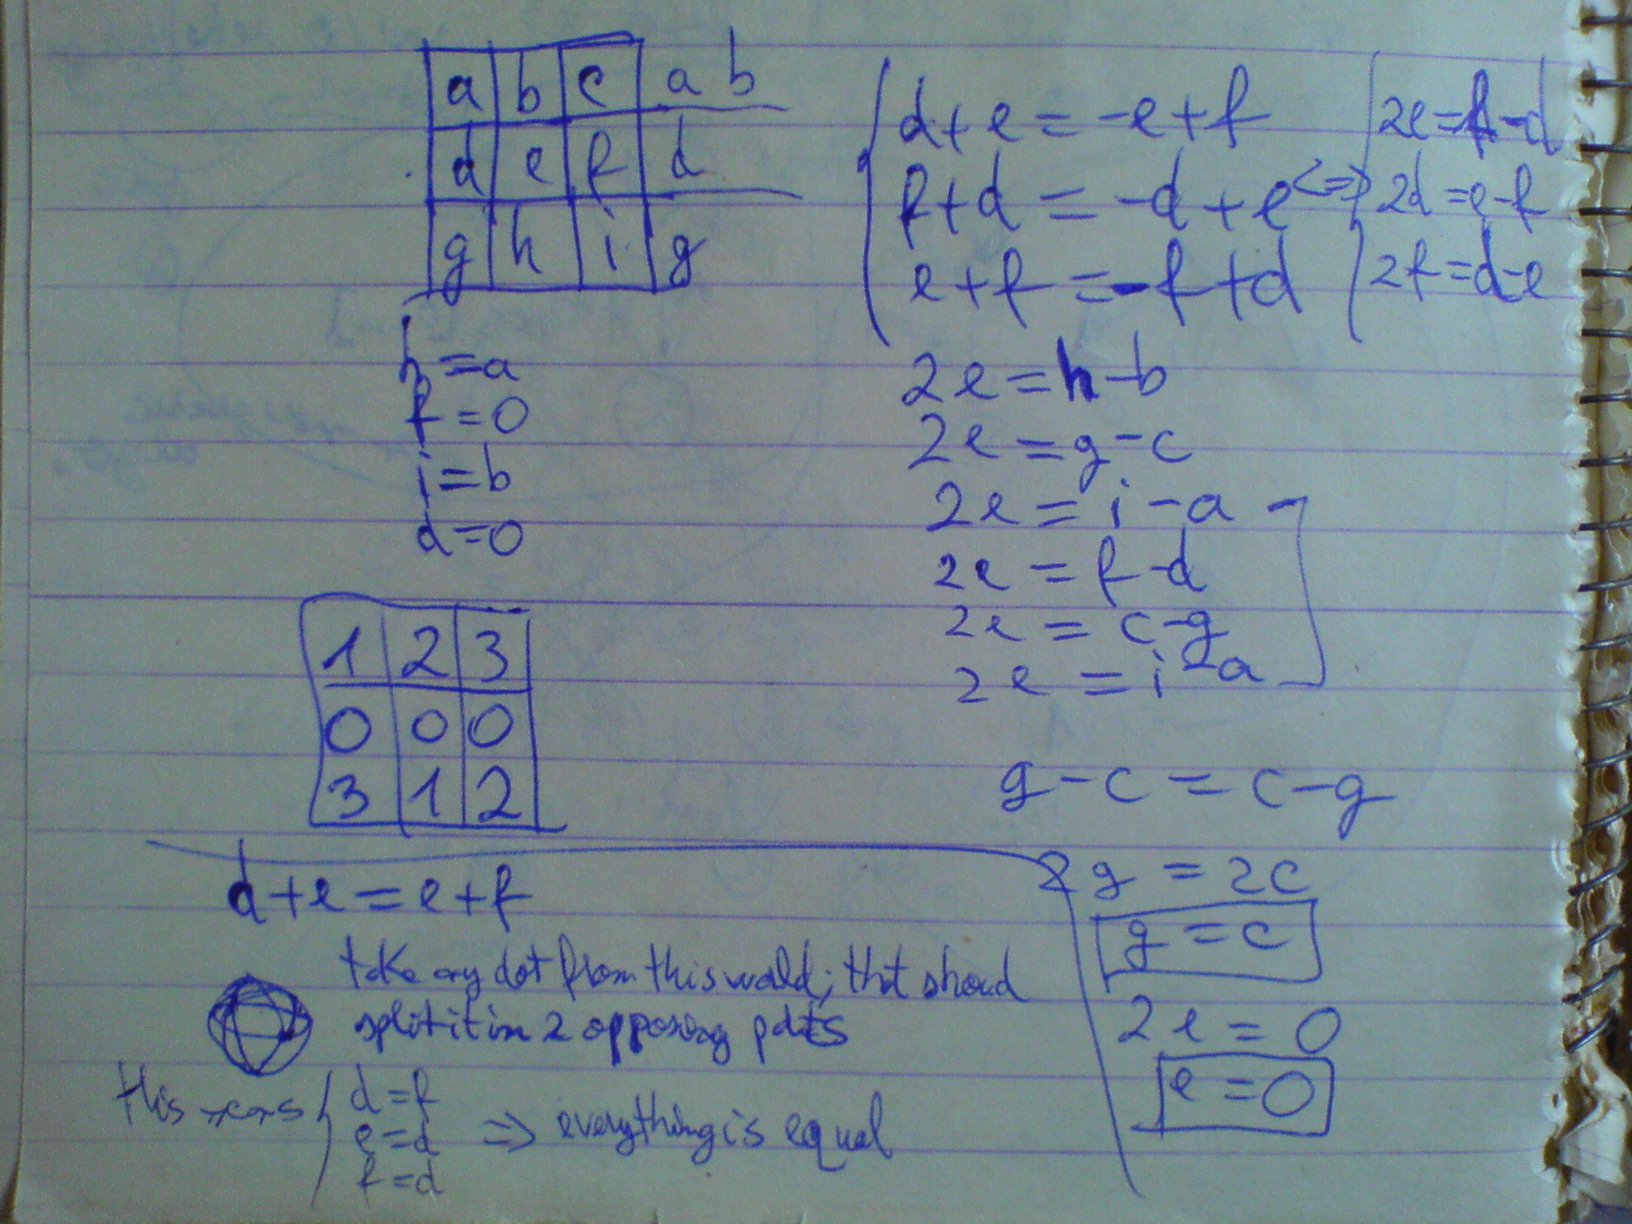 a b c a b
d e f d
g h i g
h = a
f = 0
i = b
d = 0
1 2 3
0 0 0
3 1 2
d + e = -e + f
f + d = -d + e
e + f = -f + d
<=>
2e = f - d
2d = e - f
2f = d - e
2e = h - b
2e = g - c
2e = i - a
2e = f - d
2e = c - g
2e = i - a
g - c = c - g
2g = 2c
g = c
2e = 0
e = 0
d + e = e + f
take any dot from this world; that shoud
split it in 2 opposing parts
this
d = f
e = d
f = d
=> everything is equal